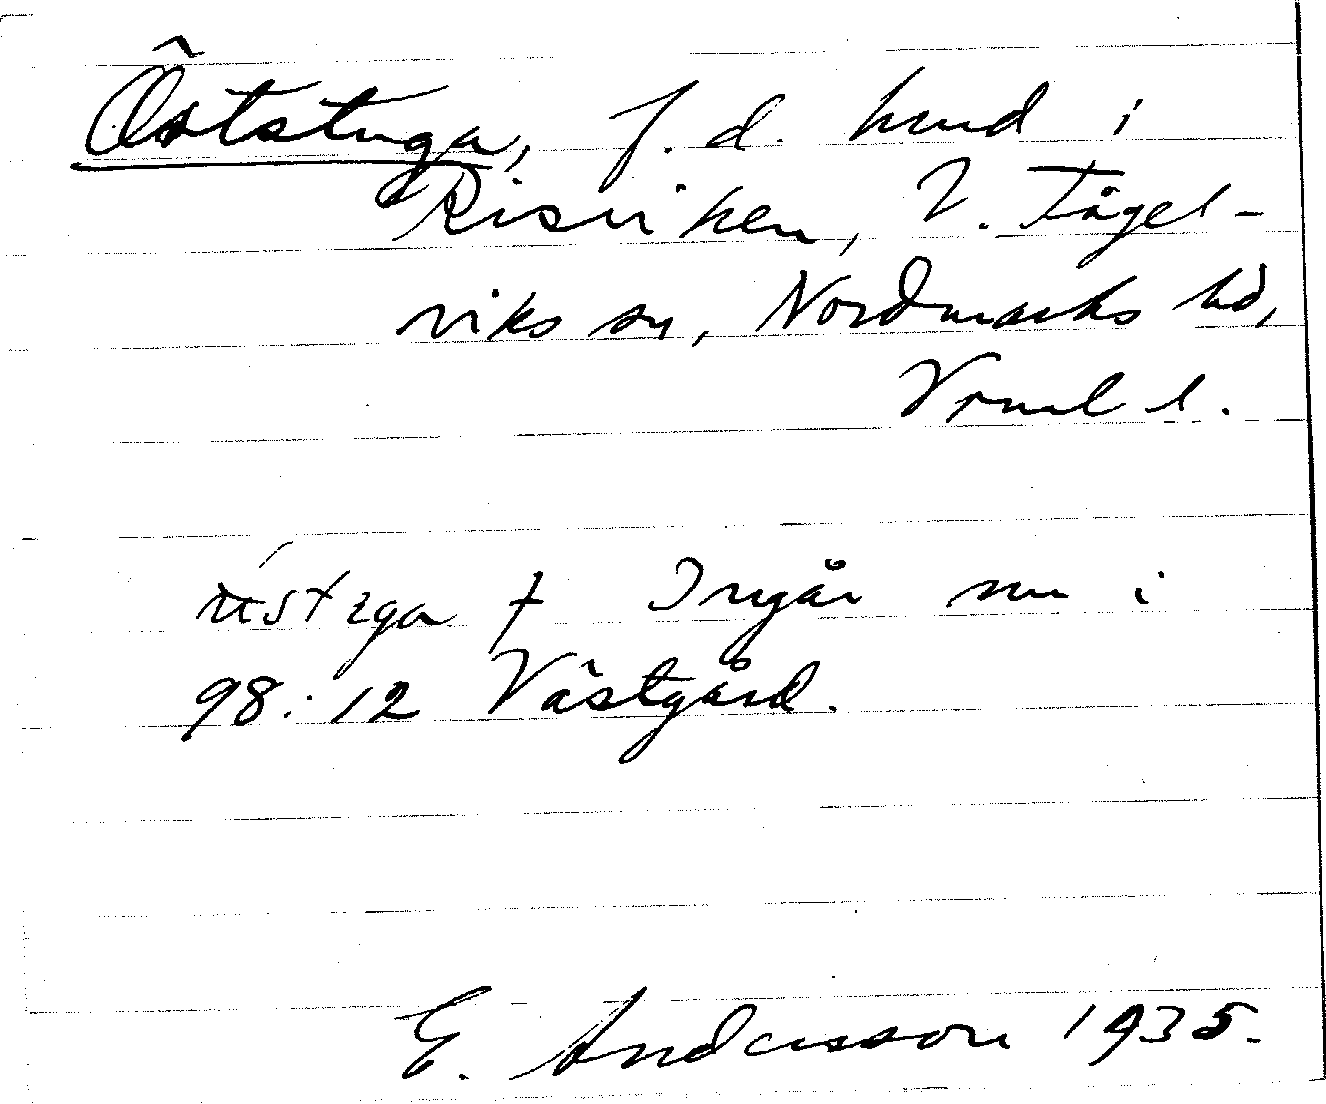 Öststuga, f.d. hmd i
Risviken, V. Fågel-
viks sn, Nordmarks hd,
Vrml l.
† Ingår nu i
98:12 Västgård.
E. Andersson 1935.